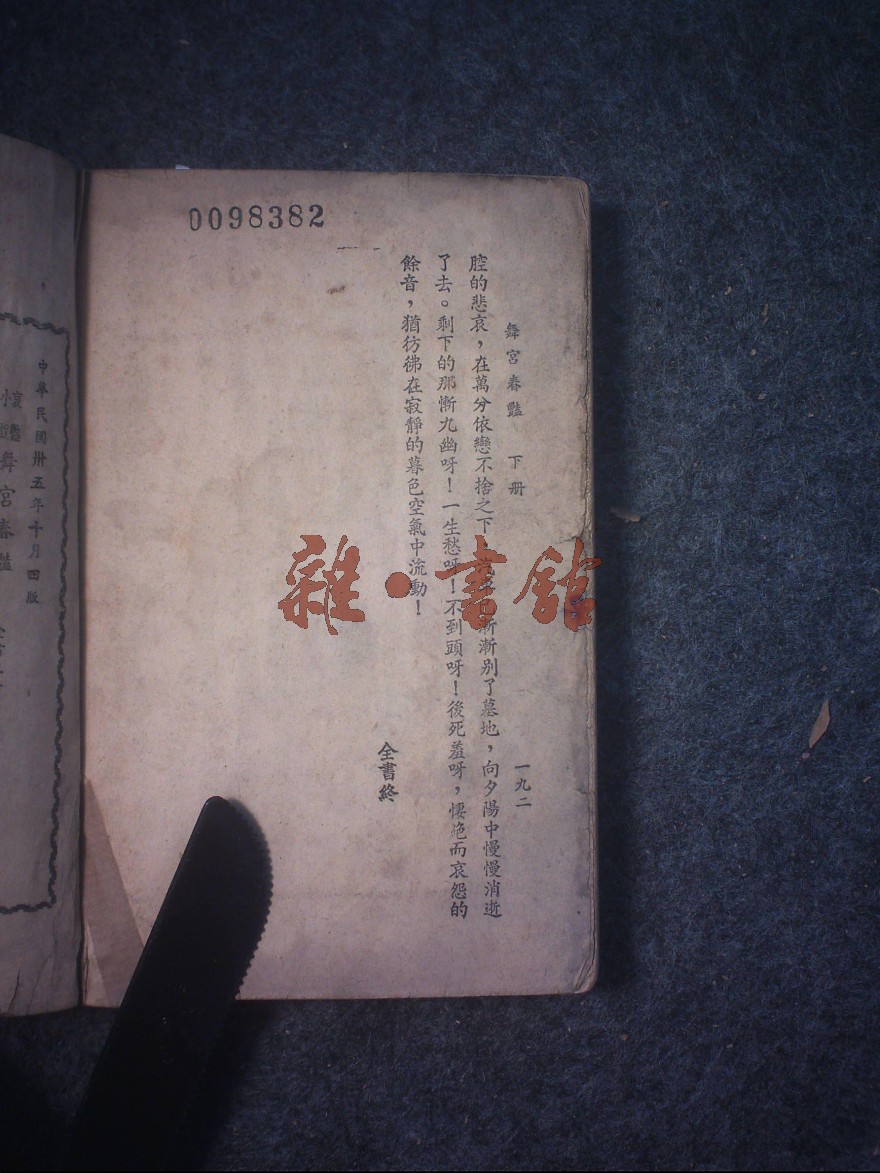 0098382
舞宮春豔 下册 一九二
腔的悲哀，在萬分依戀不捨之下，漸漸别了墓地，向夕陽中慢慢消逝
了去。剩下的那慚九幽呀！一生愁呀！不到頭呀！後死羞呀，悽絶而哀怨的
餘音，猶彷彿在寂靜的暮色空氣中流動！
全書終
雜·書館
中華民國卅五年十月四版
哀艷
小說
舞宮春豔